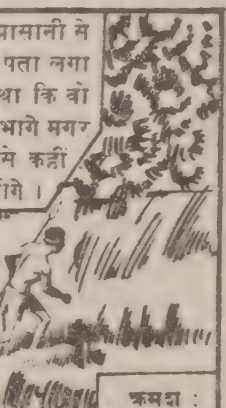 आसानी से
पता लगा
था कि वो
भागे मगर
से कहीं
गे ।
क्रमश :